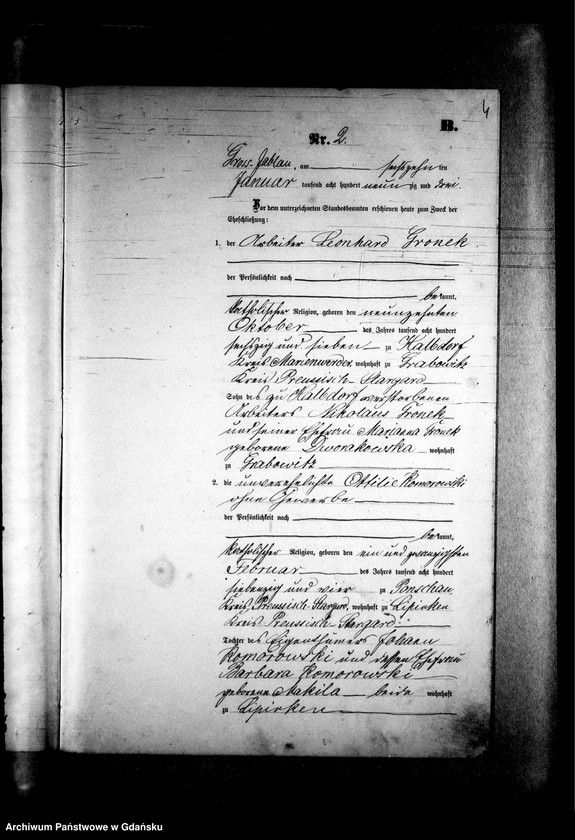 4
B.
Nr. 2.
Gross-Jablau, am sechszehn ten
Januar tausend acht hundert neun zig und drei.
Vor dem unterzeichneten Standesbeamten erschienen heute zum Zweck der
Eheschließung:
1. der Arbeiter Leonhard Gronek
der Persönlichkeit nach
be kannt,
katholischer Religion, geboren den neunzehnten
Oktober des Jahres tausend acht hundert
sechszig und sieben zu Kalbdorf
Kreis Marienwerder, wohnhaft zu Grabowitz
Kreis Preussisch-Stargard
Sohn des zu Kalbdorf verstorbenen
Arbeiters Nikolaus Gronek
und seiner Ehefrau Marianna Gronek
geborene Dworakowska wohnhaft
zu Grabowitz
2. die unverehelichte Ottilie Komorowski
ohne Gewerbe
der Persönlichkeit nach
be kannt,
katholischer Religion, geboren den ein und zwanzigsten
Februar des Jahres tausend acht hundert
siebenzig und vier zu Ponschau
Kreis Preussisch-Stargard, wohnhaft zu Lipinken
Kreis Preussisch-Stargard
Tochter des Eigenthümers Johann
Komorowski und dessen Ehefrau
Barbara Komorowski
geborene Makila beide wohnhaft
zu Lipinken
Archiwum Państwowe w Gdańsku